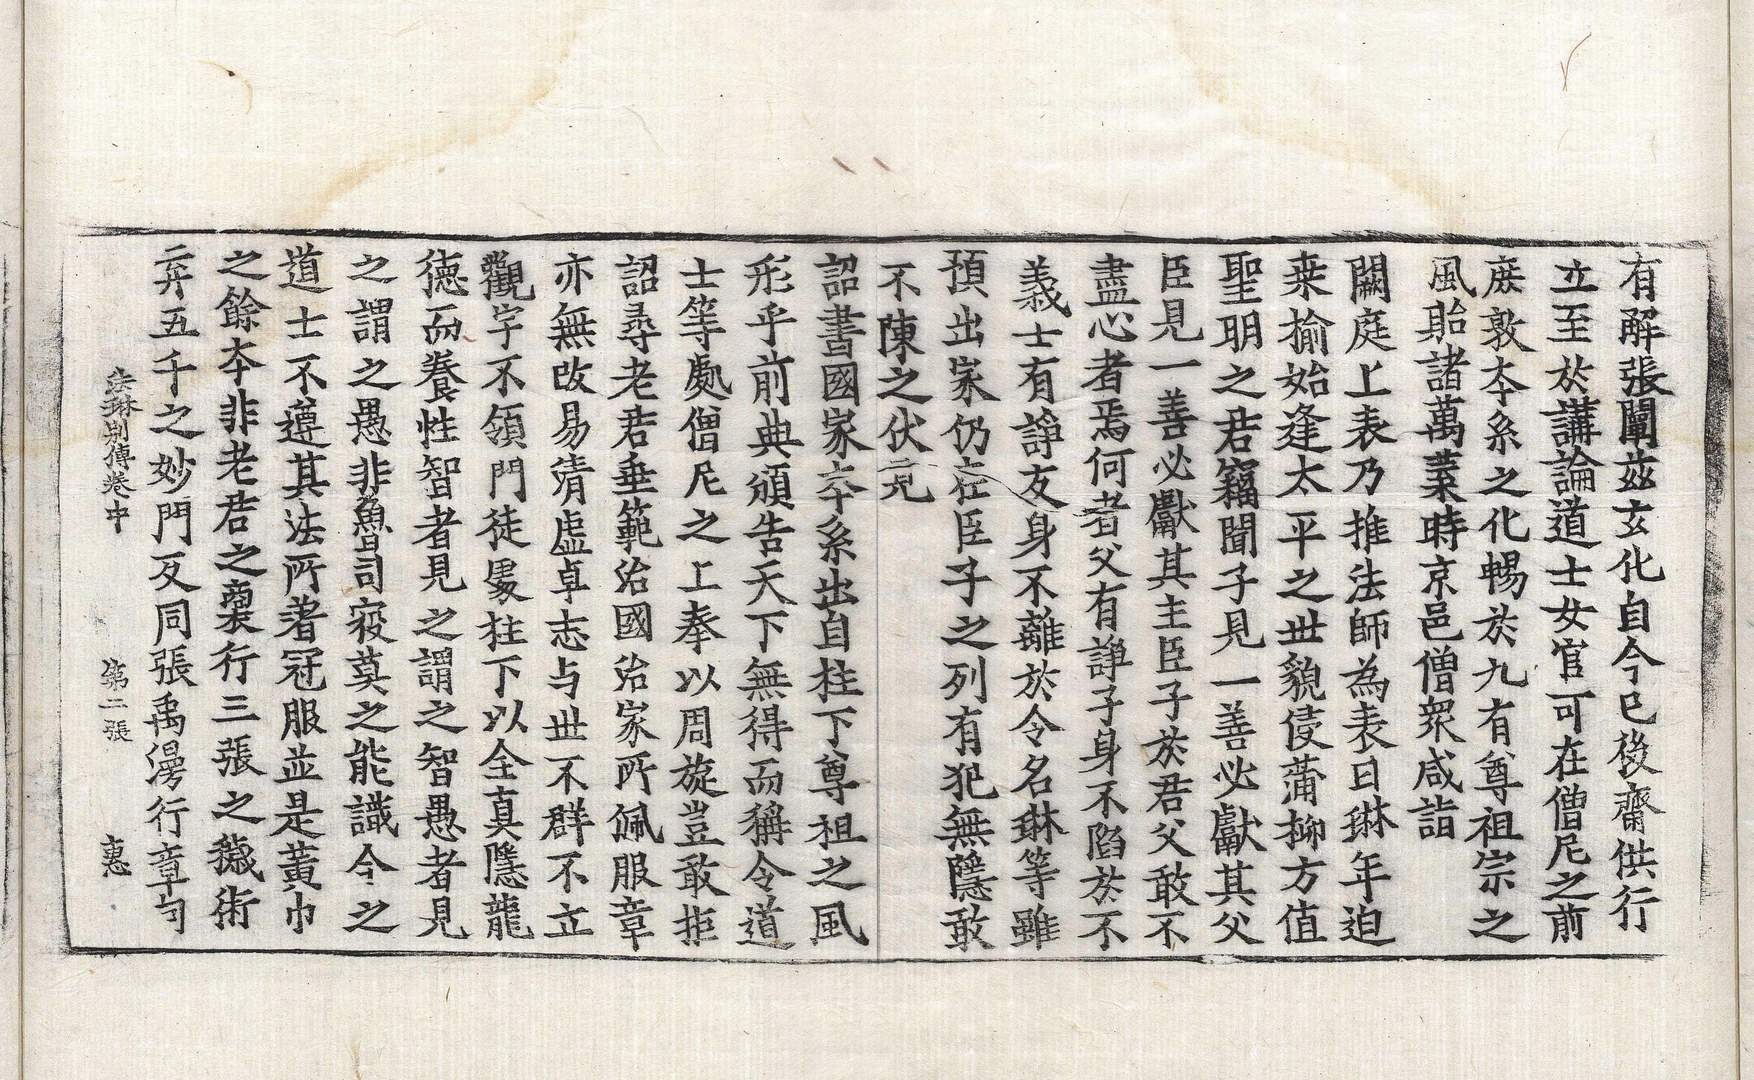 有解張闡玆玄化自今已後齋供行
立至於講論道士女官可在僧尼之前
庶敦夲系之化暢於九有尊祖宗之
風貽諸萬葉時京邑僧衆咸詣
闕庭上表乃推法師為表曰琳年迫
桒榆始逢太平之世貌侵蒲柳方值
聖明之君竊聞子見一善必獻其父
臣見一善必獻其主臣子於君父敢不
盡心者焉何者父有諍子身不陷於不
義士有諍友身不離於令名琳等雖
預出家仍在臣子之列有犯無隱敢
不陳之伏見
詔書國家夲系出自柱下尊祖之風
形乎前典頒告天下無得而稱令道
士等處僧尼之上奉以周旋豈敢拒
詔尋老君垂範治國治家所佩服章
亦無改易清虛卓志与世不群不立
觀宇不領門徒處柱下以全真隱龍
德而養性智者見之謂之智愚者見
之謂之愚非魯司寇莫之能識今之
道士不遵其法所著冠服並是黃巾
之餘夲非老君之裔行三張之穢術
弃五千之妙門反同張禹漫行章句
法琳別傳卷中　第二張　惠